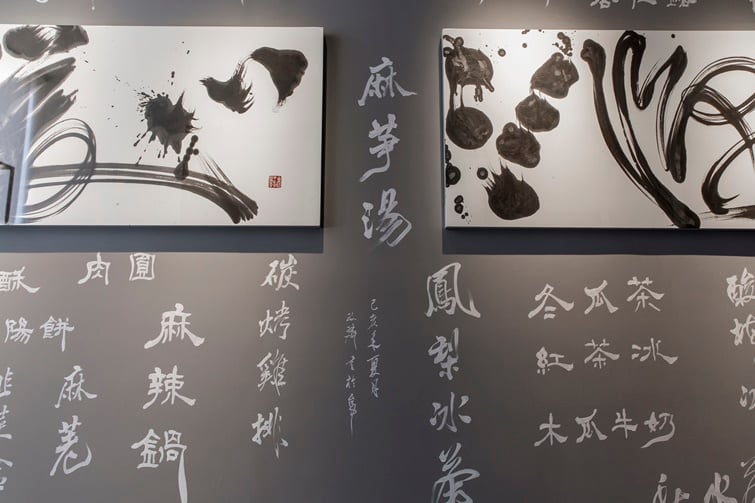 麻芛湯
肉圓
酥
陽餅
麻荖
麻辣鍋
碳烤雞排
鳳梨冰茶
冬瓜茶
紅茶冰
木瓜牛奶